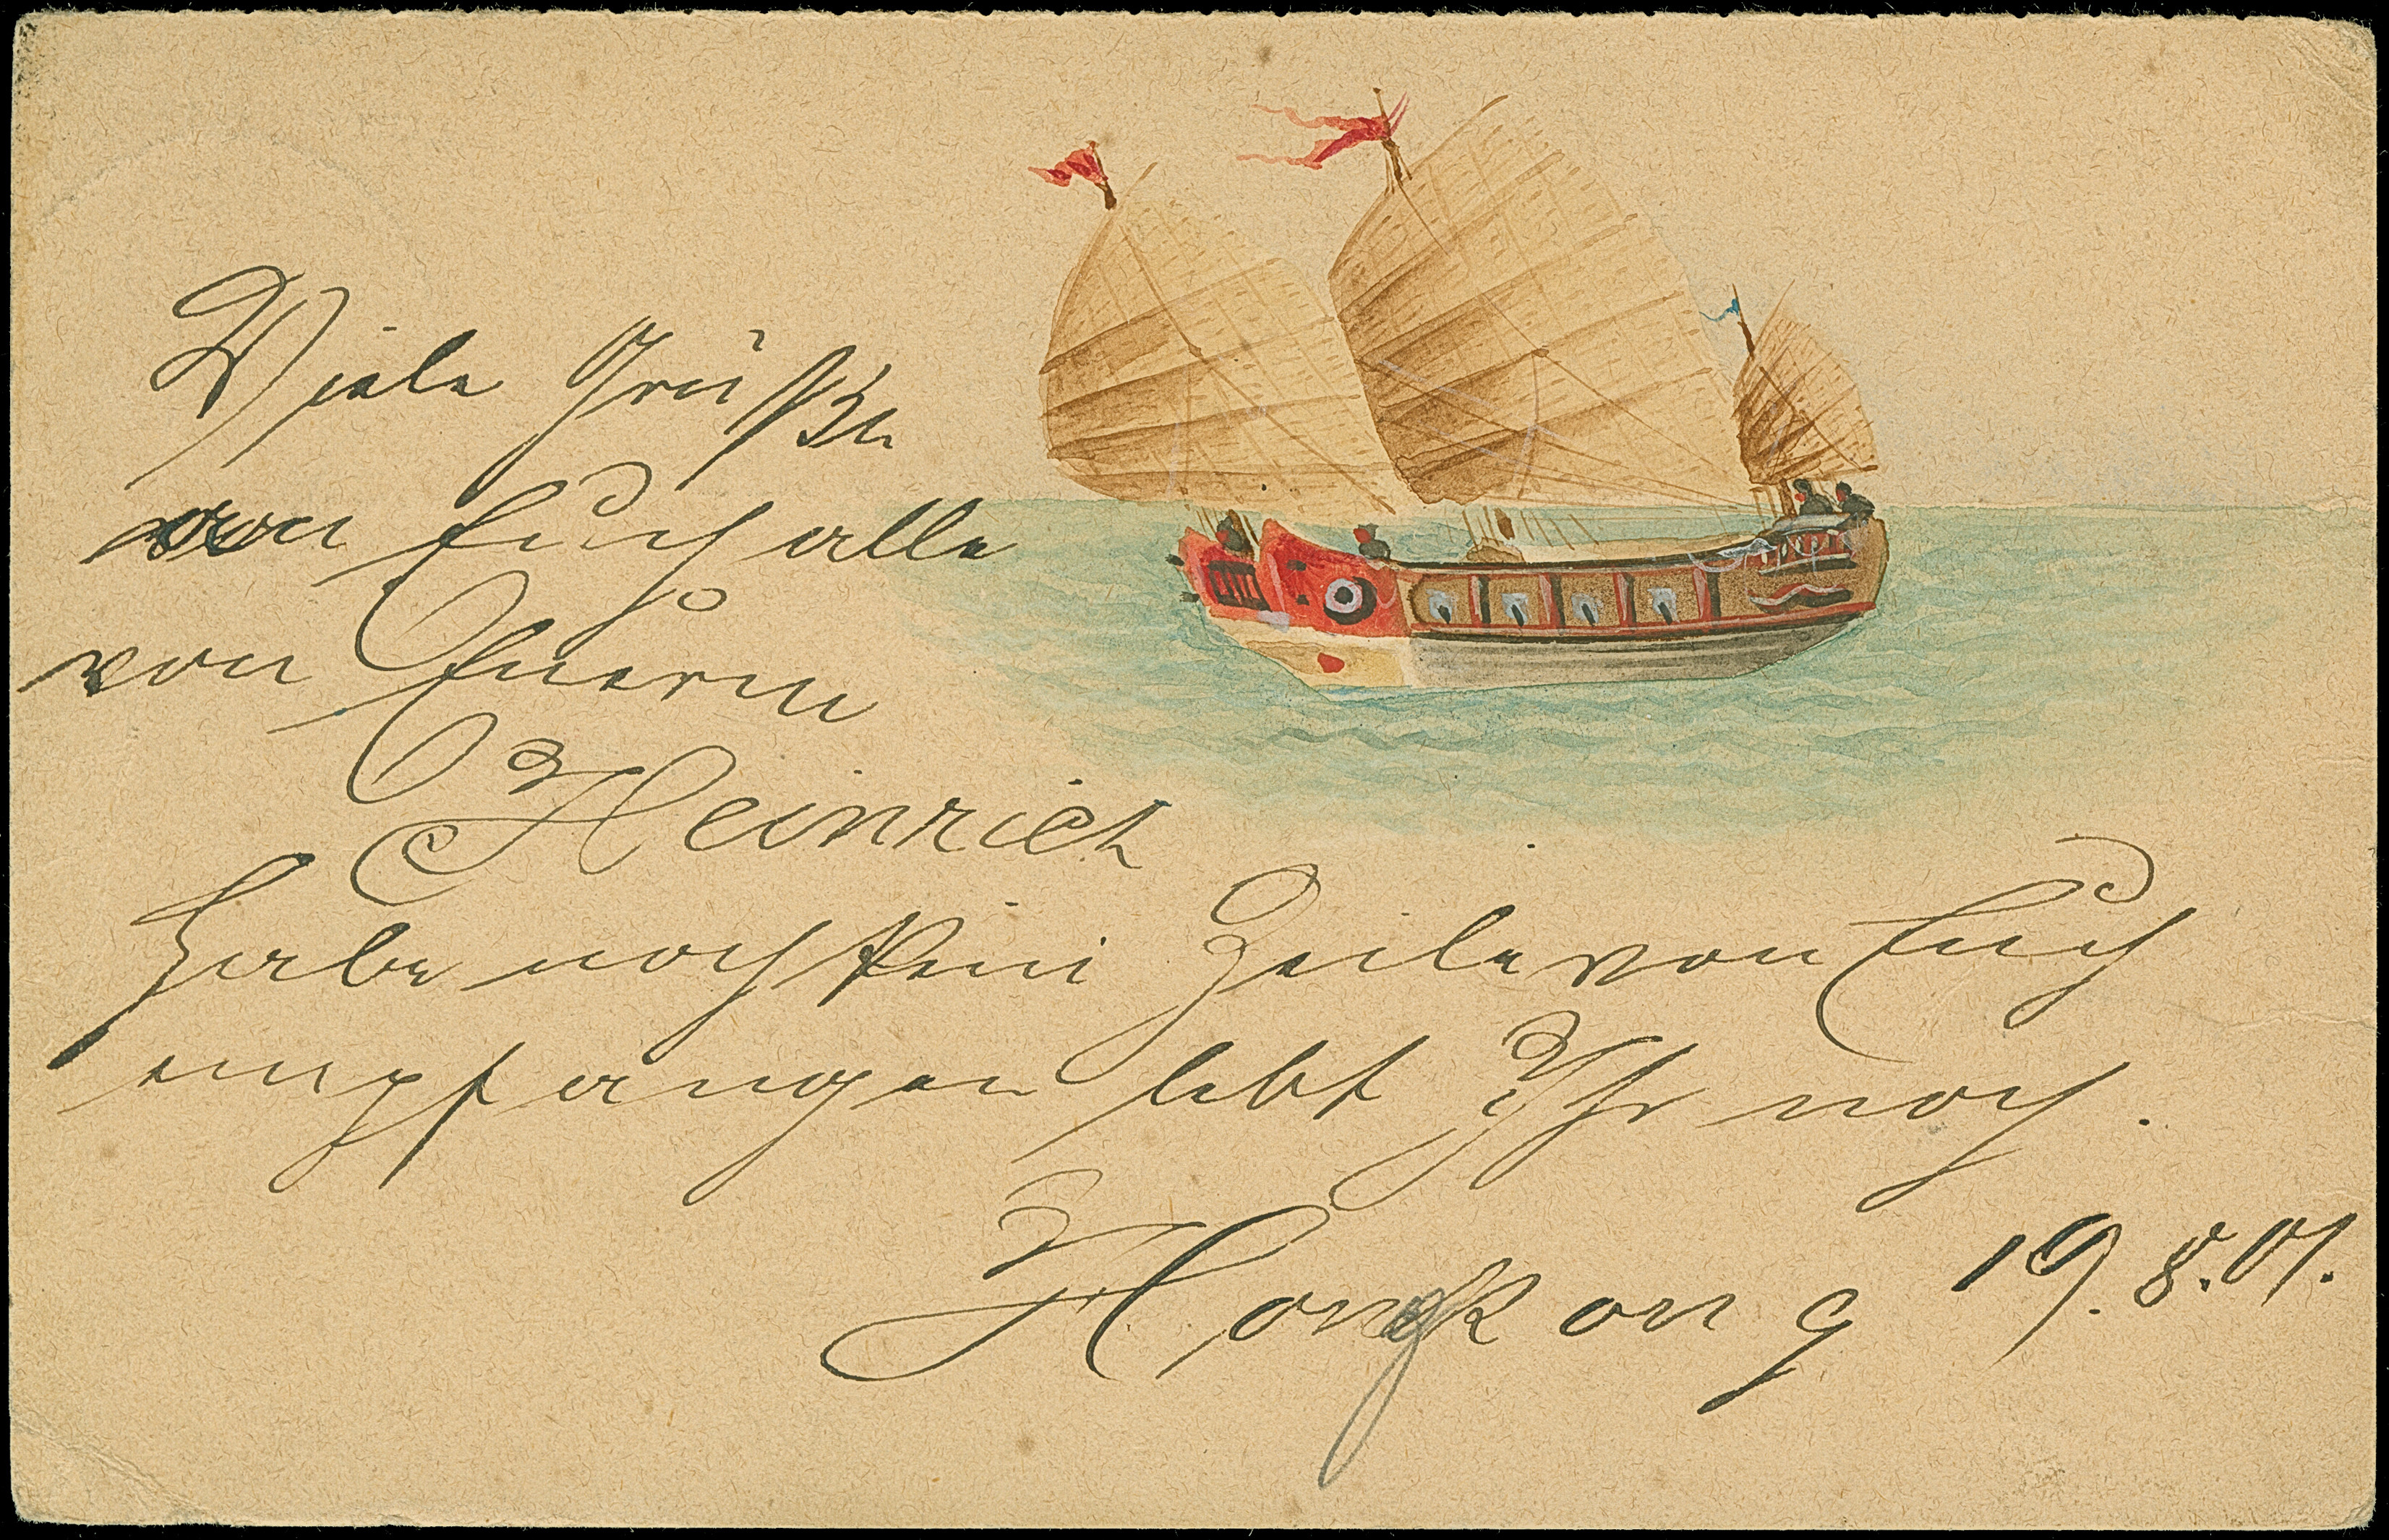 Viele Grüße
an Euch alle
von Euerm
Heinrich
Habe noch keine Zeile von Euch
empfangen lebt Ihr noch.
Hongkong 19.8.01.